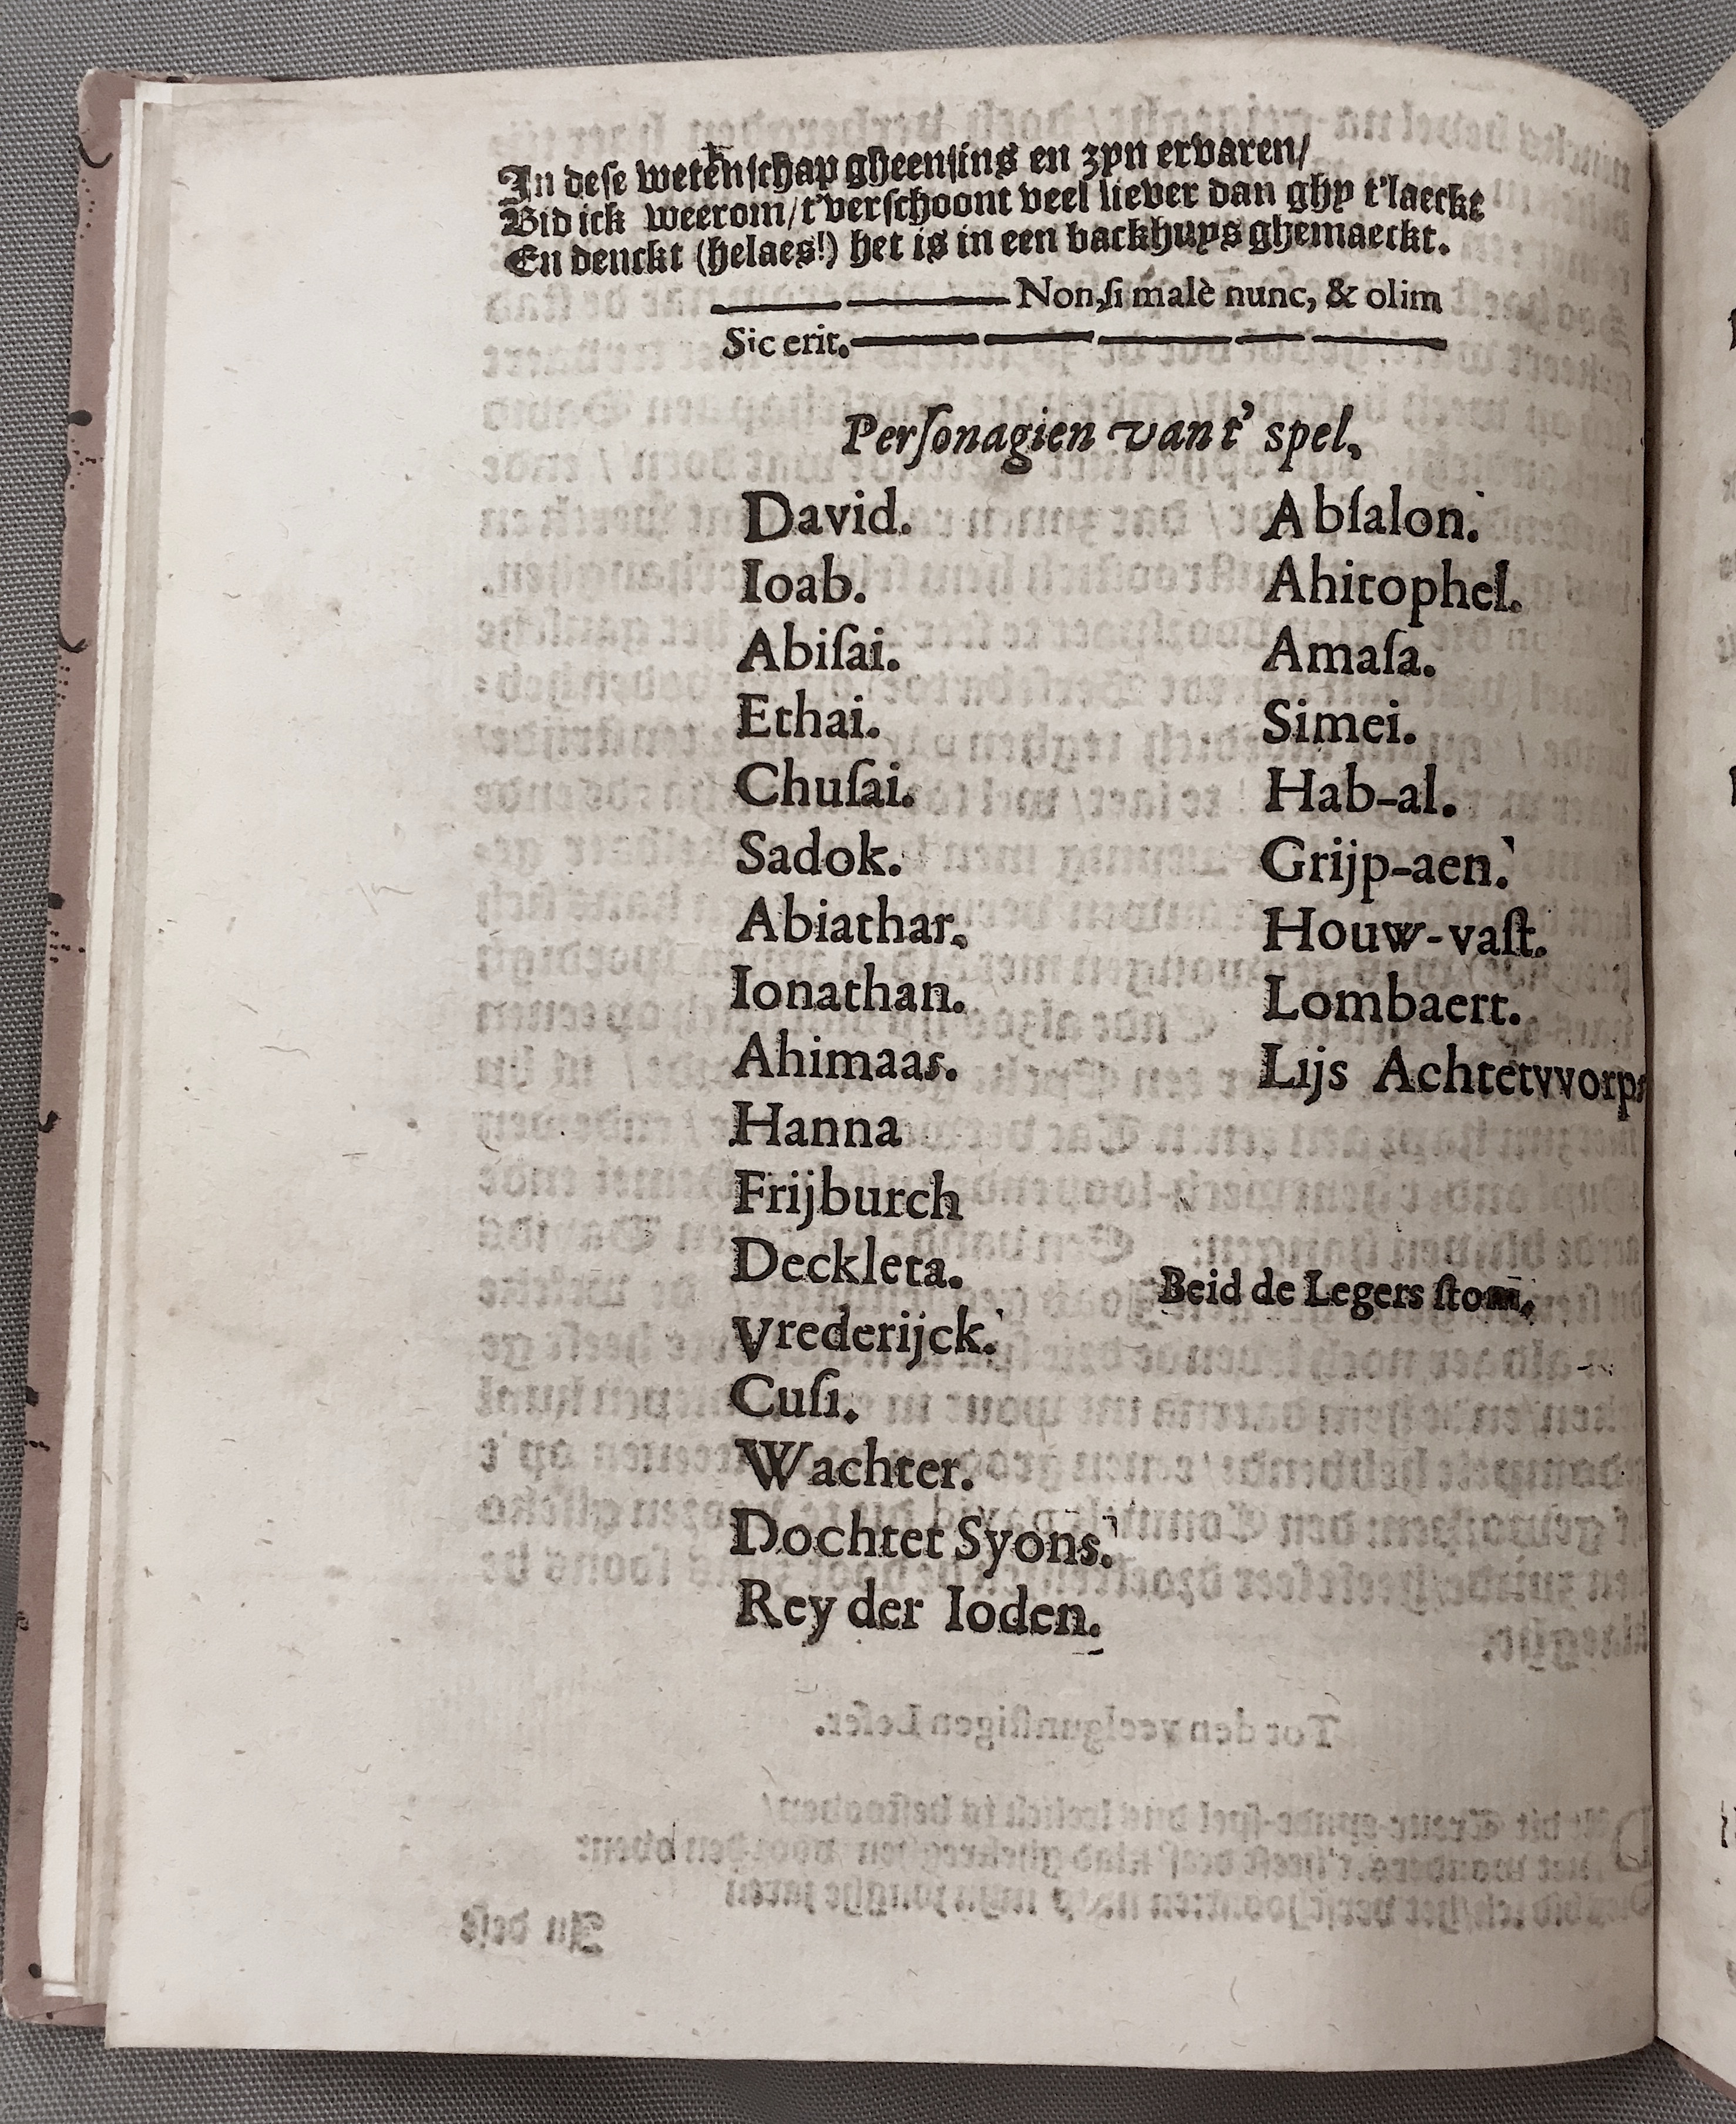 In dese wetenschap gheensins en zyn ervaren/
Bid ick weerom/t'verschoont veel liever dan ghy t'laeckt
En denckt (helaes!) het is in een backhuys ghemaeckt.
Non,si malè nunc, & olim
Sic erit.
Perſonagien vant' spel.
David.
Ioab.
Abiſai.
Ethai.
Chuſai.
Sadok.
Abiathar.
Ionathan.
Ahimaas.
Hanna
Frijburch
Deckleta.
Vrederijck.
Cuſi.
Wachter.
Dochter Syons.
Rey der Ioden.
Abſalon.
Ahitophel.
Amaſa.
Simei.
Hab-al.
Grijp-aen.
Houw-vaſt.
Lombaert.
Lijs Achtetvvorps
Beid de Legers ſtom.